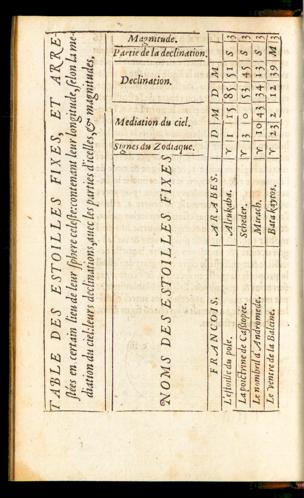 TABLE DES ESTOILLES FIXES, ET ARRE-
stées en certain lieu de leur sphere celeste: contenant leur longitude, selon la me-
diation du ciel: leurs declinations, auec les parties d'icelles, & magnitudes.
NOMS DES ESTOILLES FIXES
Signes du Zodiaque.
Mediation du ciel.
Declination.
Partie de la declination.
Magnitude.
FRANCOIS. ARABES. D M D M
L'estoille du pole. Alrukaba. ♈ 1 15 85 51 S 3
La poictrine de Cassiopée. Scheder. ♈ 3 0 53 45 S 3
Le nombril d'Andromede. Mirach. ♈ 10 43 34 13 S 3
Le ventre de la Baleine. Batakaytos. ♈ 23 2 12 39 M 3